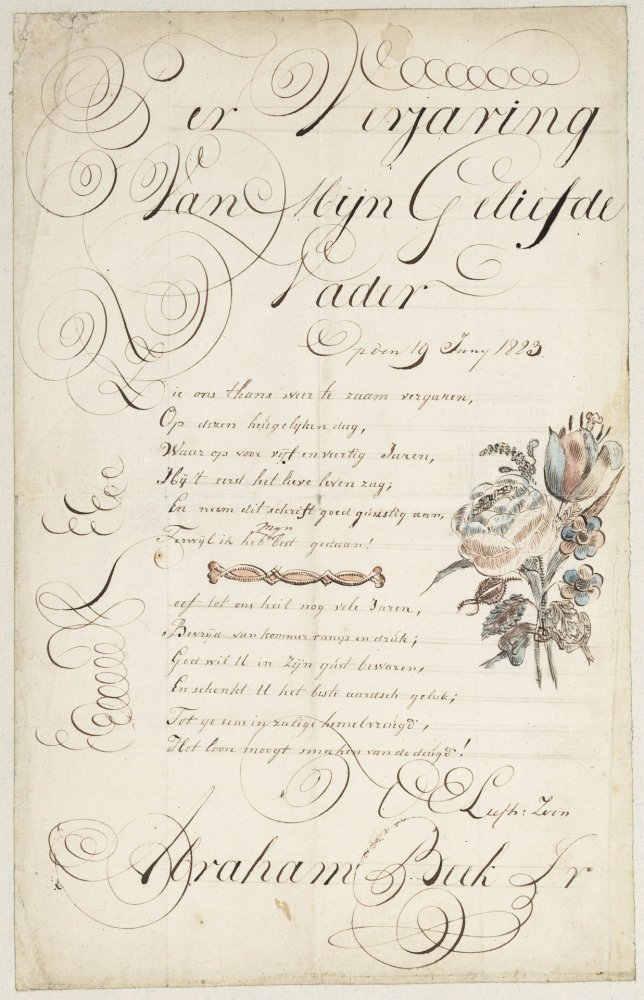 Ter Verjaring
Van Mijn Geliefde
Vader
Op den 19 Juny 1823.
Die ons thans weer te zaam vergaren,
Op dezen heugelijken dag,
Waar op voor vijf en veertig Jaren,
Hij 't eerst het lieve leven zag;
En neem dit schrift goed gunstig aan,
mijn
Terwijl ik het best gedaan!
Leef tot ons heil nog vele Jaren,
Bevrijd van kommer ramp en druk;
God wil U in Zijn gust bewaren,
En schenkt U het beste aardsch geluk;
Tot ge eens in zalige hemelvreugd,
Het loon moogt smaken van de deugd!
Liefh: Zoon
Abraham Beek Jr